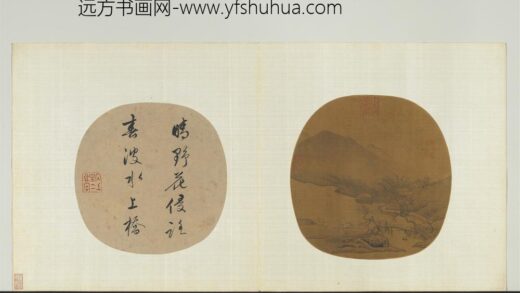 远方书画网-www.yfshuhua.com
晴野花侵路
春陂水上橋